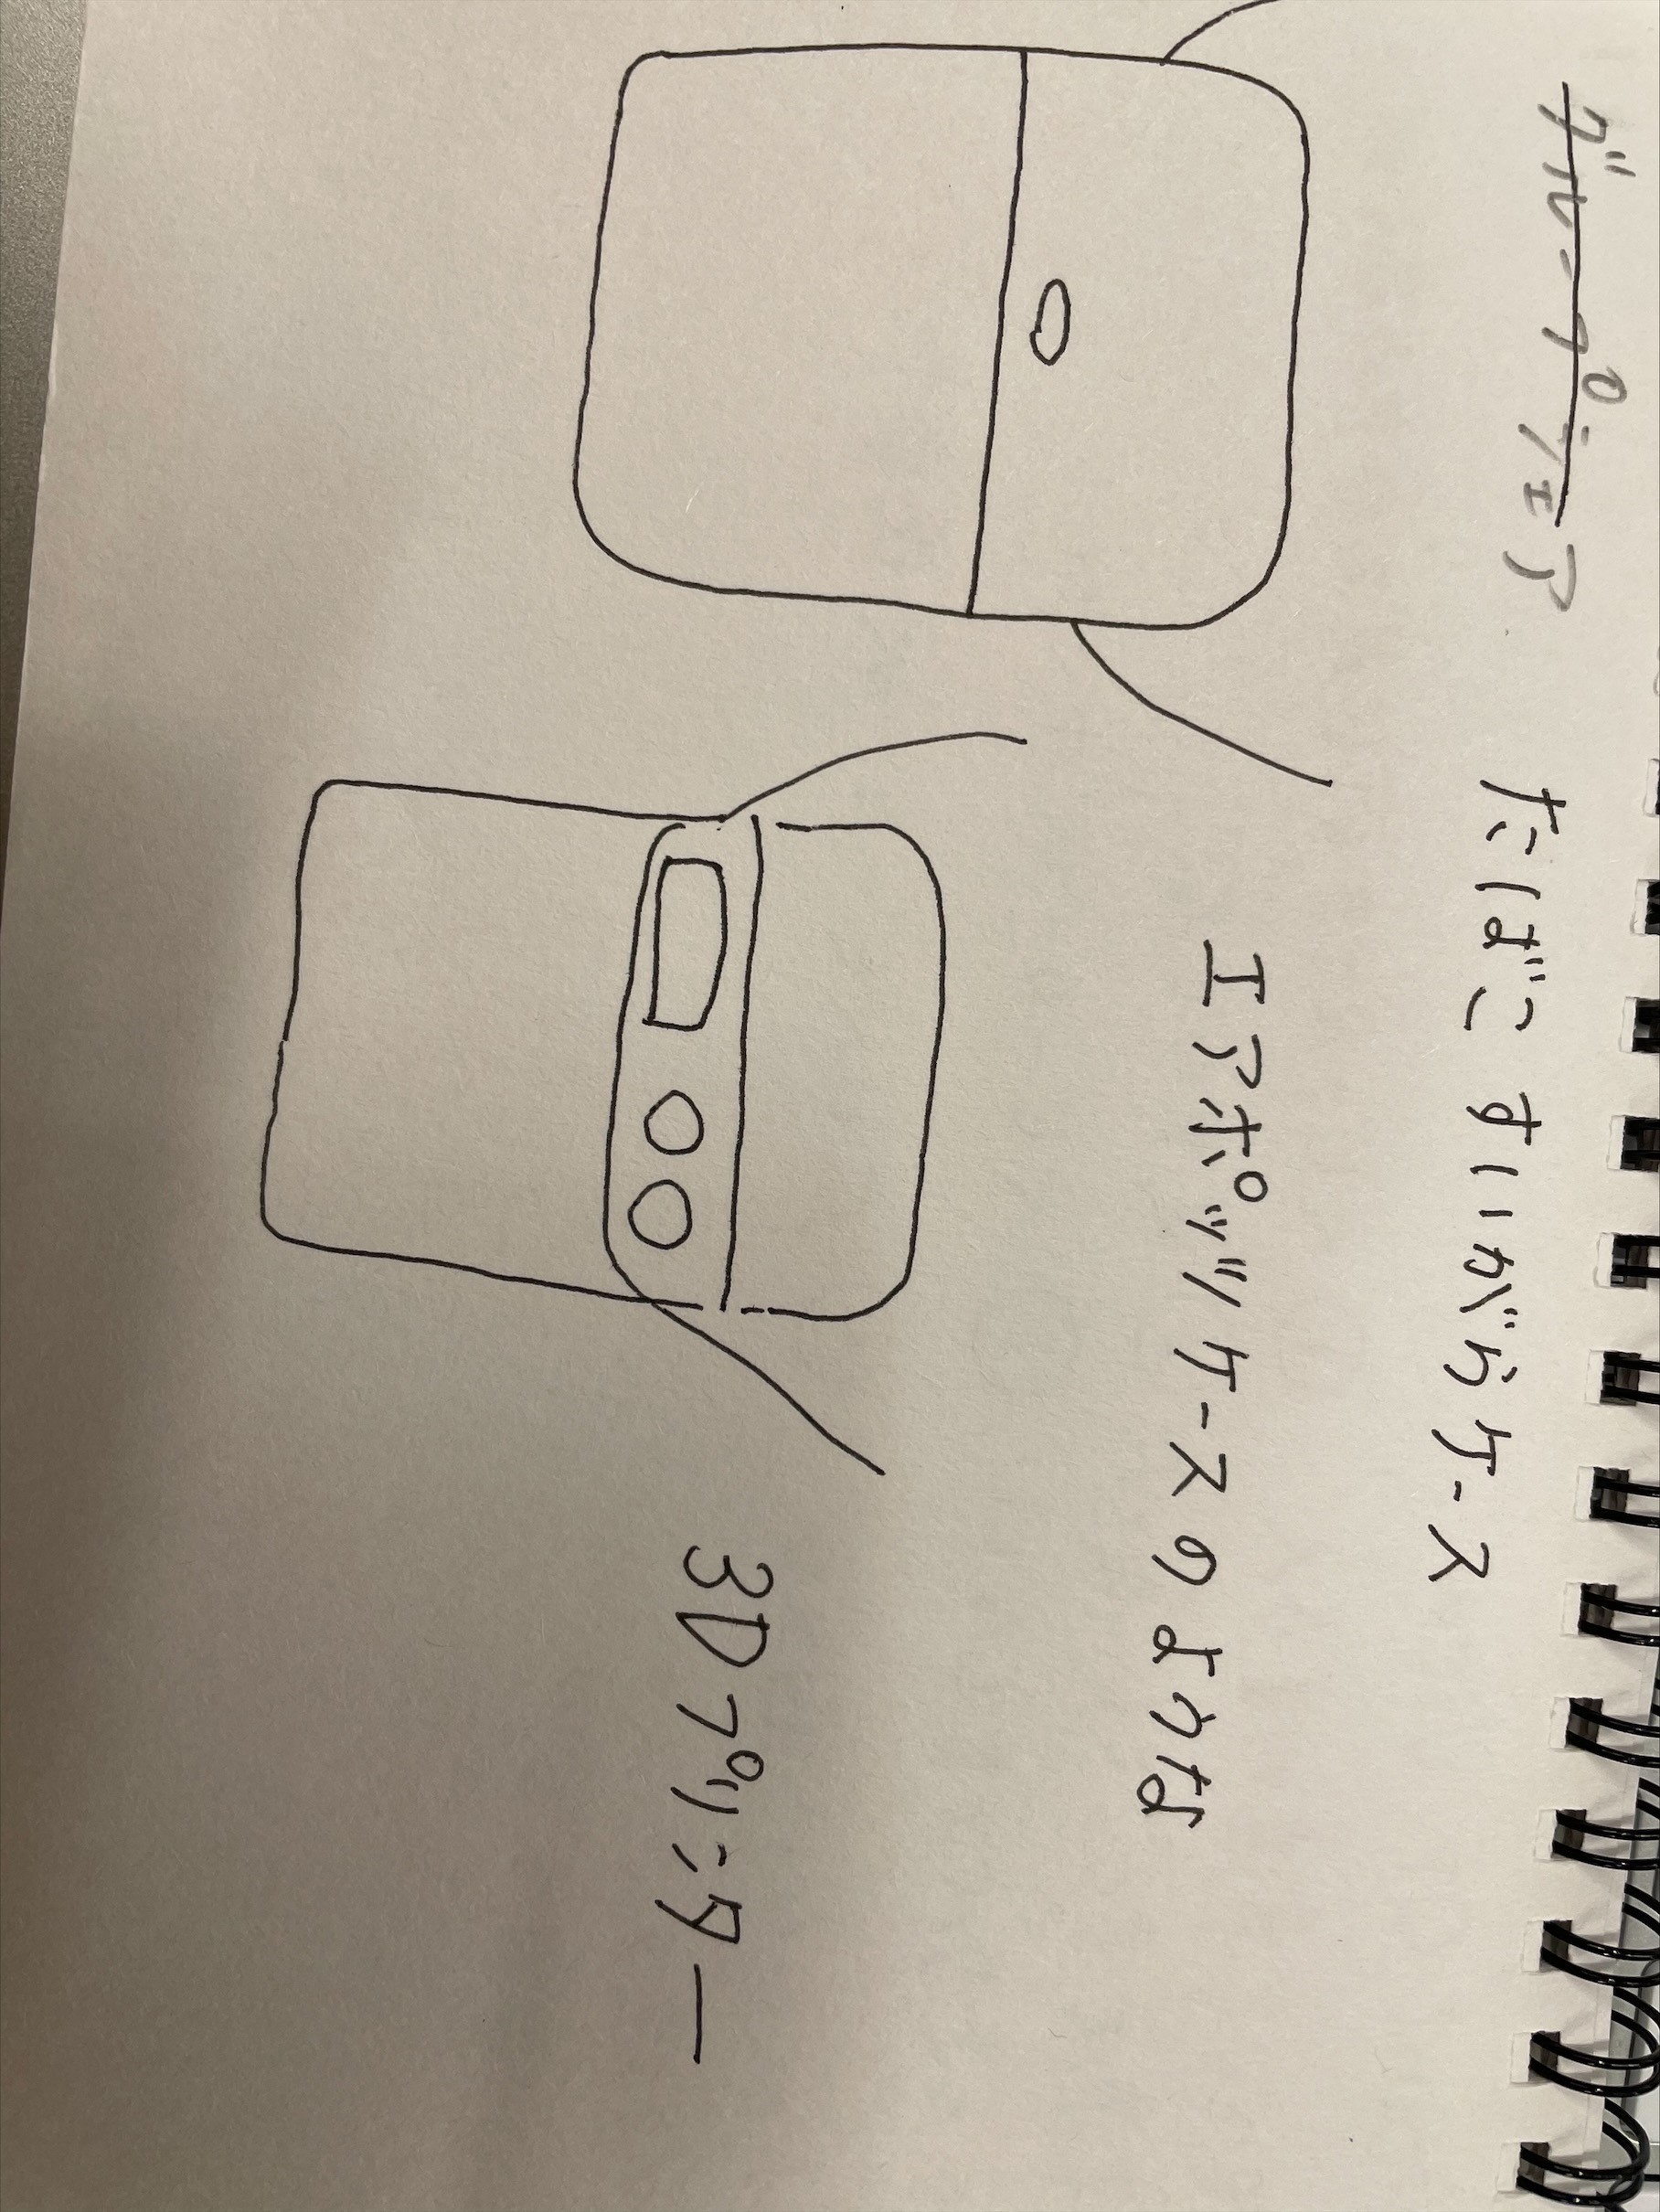 グループシェア
たばこ すいがらケース
エアポッツケースのような
3Dプリンター